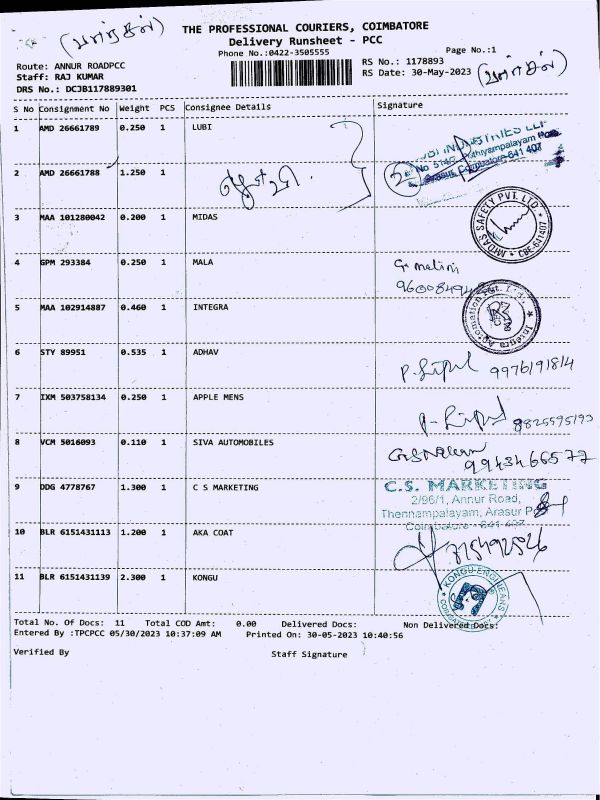 THE PROFESSIONAL COURIERS, COIMBATORE
Delivery Runsheet - PCC
Phone No.:0422-3505555
Page No.:1
Route: ANNUR ROADPCC
RS No.: 1178893
Staff: RAJ KUMAR
RS Date: 30-May-2023
DRS No.: DCJB117889301
S No Consignment No Weight PCS Consignee Details Signature
1 AMD 26661789 0.250 1 LUBI
2 AMD 26661788 1.250 1
3 MAA 101280042 0.200 1 MIDAS
MIDAS SAFETY PVT. LTD * CBE-641407 *
4 GPM 293384 0.250 1 MALA
5 MAA 102914887 0.460 1 INTEGRA
Integra Automation Pvt. Ltd.
6 STY 89951 0.535 1 ADHAV
9976191814
7 IXM 503758134 0.250 1 APPLE MENS
8825595193
8 VCM 5016093 0.110 1 SIVA AUTOMOBILES
9943466577
9 DDG 4778767 1.300 1 C S MARKETING
C.S. MARKETING
2/96/1, Annur Road,
Thennampalayam, Arasur
Coimbatore - 641 407
10 BLR 6151431113 1.200 1 AKA COAT
11 BLR 6151431139 2.300 1 KONGU
KONGU ENGINEERS
Total No. Of Docs: 11 Total COD Amt: 0.00 Delivered Docs: Non Delivered Docs:
Entered By :TPCPCC 05/30/2023 10:37:09 AM Printed On: 30-05-2023 10:40:56
Verified By Staff Signature